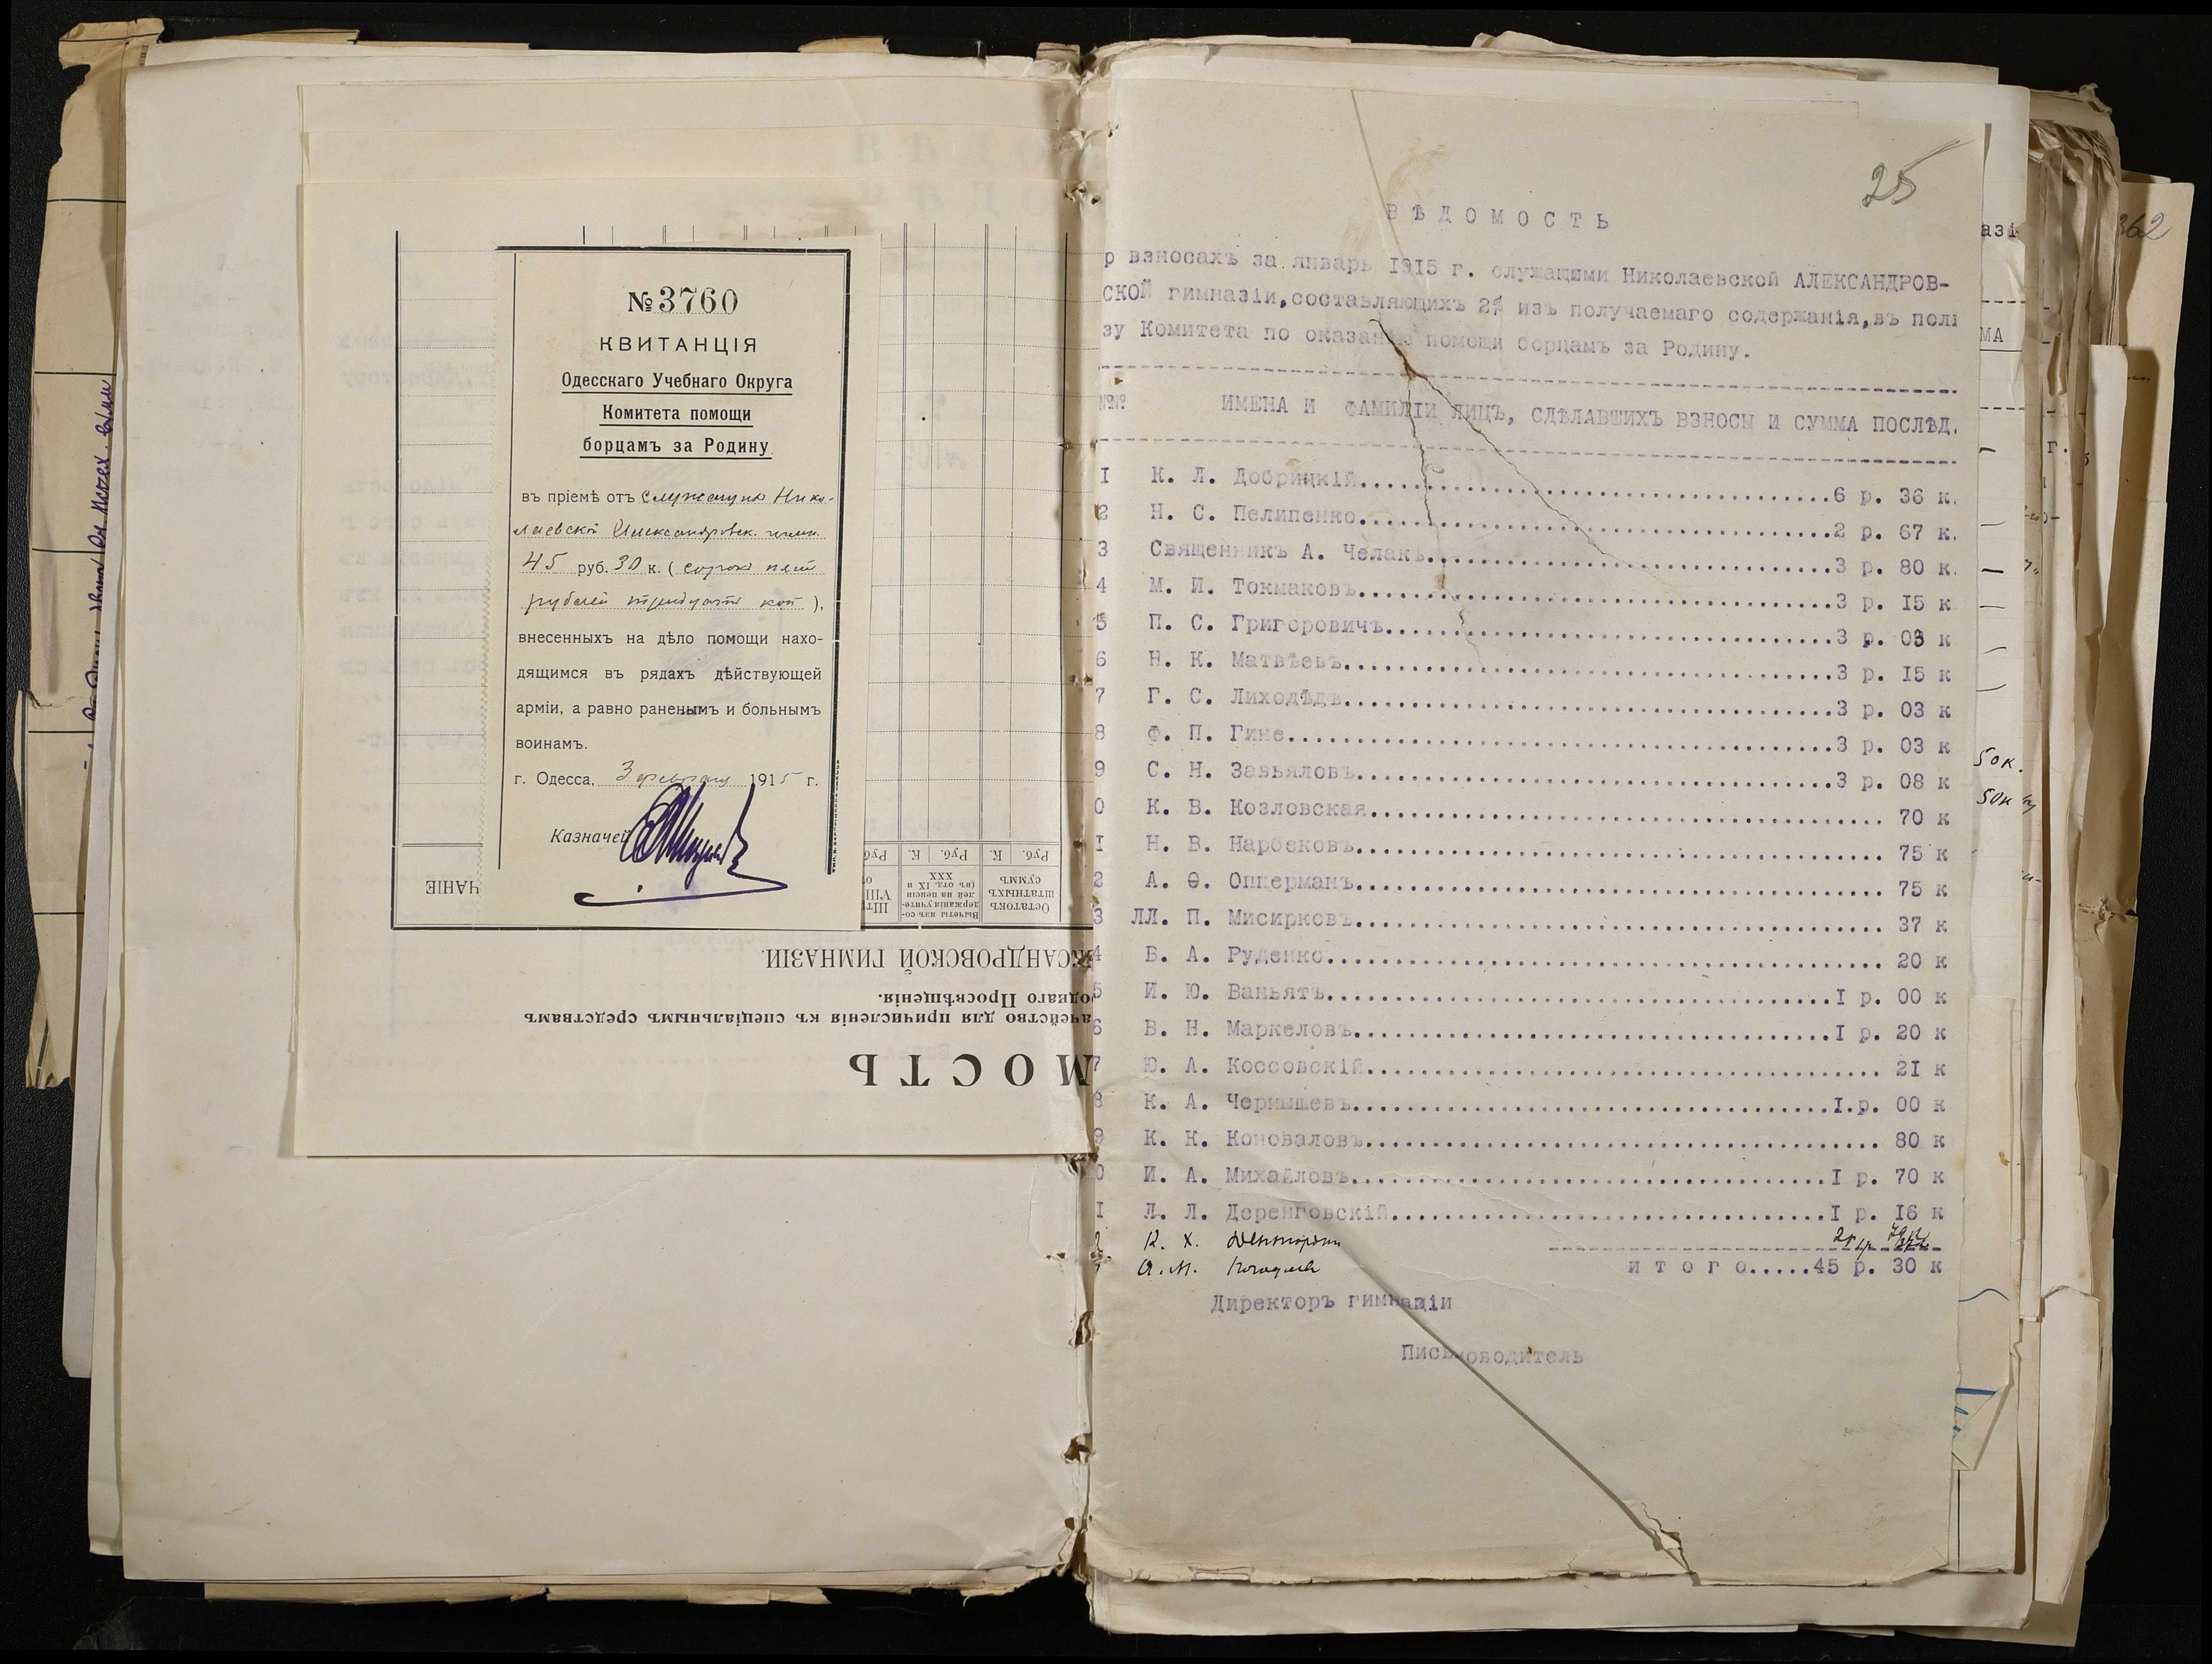 № 3760
КВИТАНЦІЯ
Одесскаго Учебнаго Округа
Комитета помощи
борцамъ за Родину
въ пріемѣ отъ служащихъ Нико-
лаевской Александровск. гимн.
45 руб. 30 к. (сорокъ пять
рублей тридцать коп),
внесенныхъ на дѣло помощи нахо-
дящимся въ рядахъ дѣйствующей
арміи, а равно раненымъ и больнымъ
воинамъ.
г. Одесса, 3 февраля 1915 г.
Казначей
ЧАНІЕ
Руб. К. Руб. К. Руб
Остатокъ штатныхъ суммъ
Вычеты изъ со-
держанія учите-
лей на пенсіи
(въ отд. IX и
XXX
VIII
КСАНДРОВСКОЙ ГИМНАЗІИ.
однаго Просвѣщенія.
ачейство для причисленія къ спеціальнымъ средствамъ
МОСТЬ
25
ВѢДОМОСТЬ
р взносахъ за январь 1915 г. служащими Николаевской АЛЕКСАНДРОВ-
СКОЙ гимназіи,составляющихъ 2% изъ получаемаго содержанія,въ поль
зу Комитета по оказанію помощи борцамъ за Родину.
№№ ИМЕНА И ФАМИЛІИ ЛИЦЪ, СДѢЛАВШИХЪ ВЗНОСЫ И СУММА ПОСЛѢД.
I К. Л. Добрицкій....6 р. 36 к.
2 Н. С. Пелипенко....2 р. 67 к.
3 Священникъ А. Челакъ....3 р. 80 к.
4 М. И. Токмаковъ....3 р. I5 к
5 П. С. Григоровичъ....3 р. 03 к
6 Н. К. Матвѣевъ....3 р. I5 к
7 Г. С. Лиходѣдъ....3 р. 03 к
8 Ф. П. Гине....3 р. 03 к
9 С. Н. Завьяловъ....3 р. 08 к
0 К. В. Козловская.... 70 к
I Н. В. Нарбековъ.... 75 к
2 А. Ѳ. Опперманъ.... 75 к
3 ЛЛ. П. Мисирковъ.... 37 к
4 Б. А. Руденко.... 20 к
5 И. Ю. Ваньятъ....I р. 00 к
6 В. Н. Маркеловъ....I р. 20 к
7 Ю. А. Коссовскій.... 2I к
8 К. А. Чернышевъ....I.р. 00 к
9 К. К. Коноваловъ.... 80 к
0 И. А. Михайловъ....I р. 70 к
I Л. Л. Деренговскій....I р. I6 к
К. Х.
А. М.
и т о г о.....45 р. 30 к
Директоръ гимназіи
Письмоводитель
азі
МА
50к.
50к
362